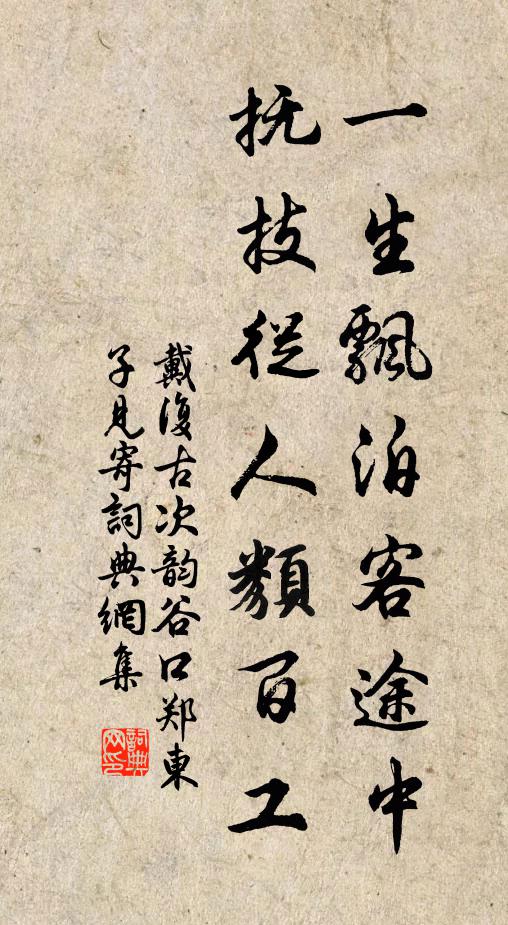 一生飄泊客途中
抚技從人類百工
戴復古次韵谷口郑東
子見寄詞典網集
詞典
网印